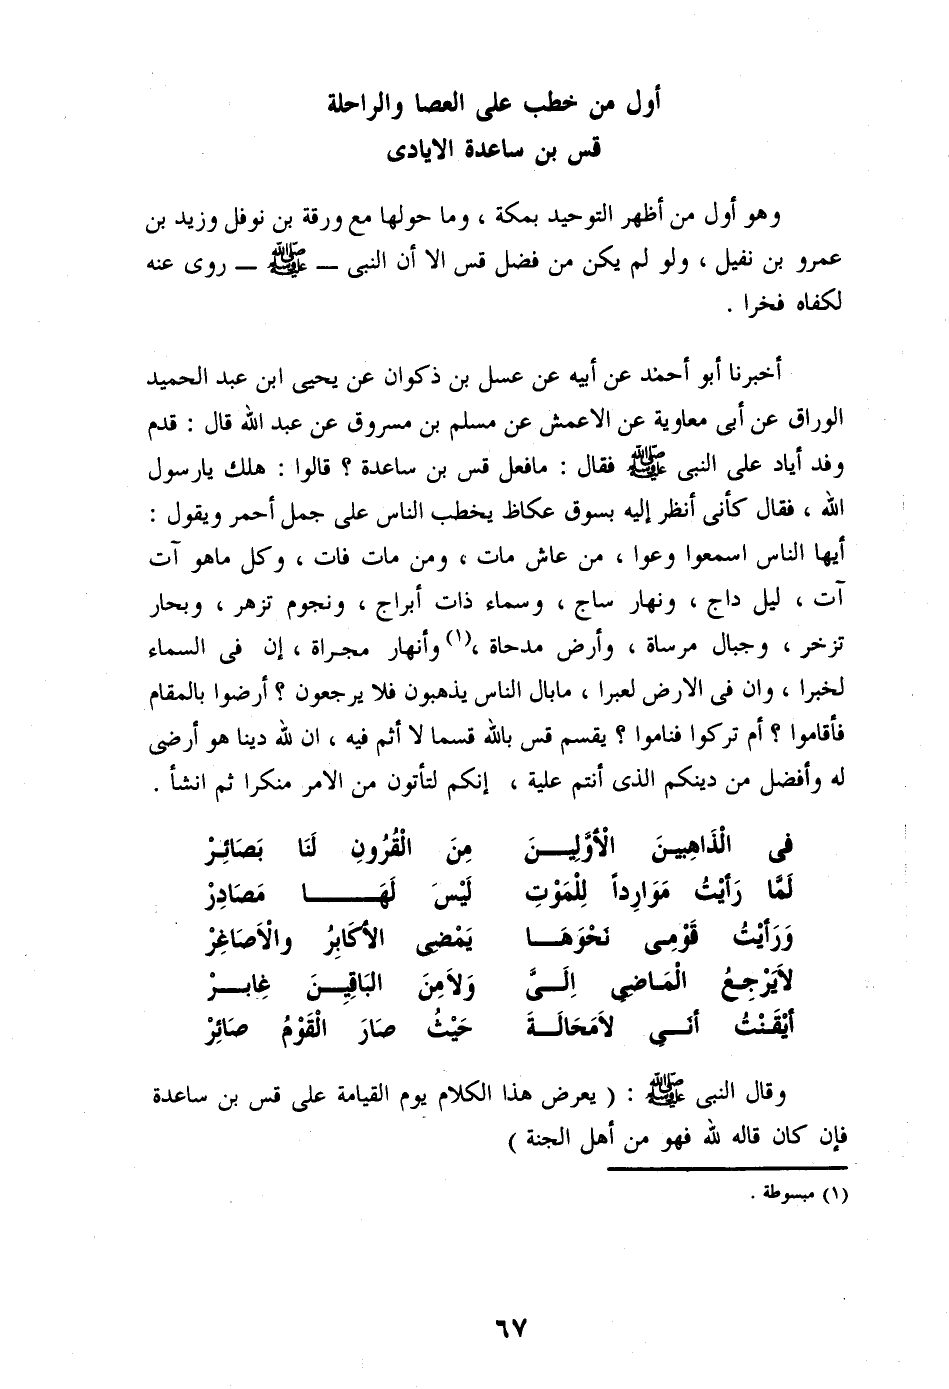 أول من خطب على العصا والراحلة
قس بن ساعدة الايادى
وهو أول من أظهر التوحيد بمكة ، وما حولها مع ورقة بن نوفل وزيد بن
عمرو بن نفيل ، ولو لم يكن من فضل قس الا أن النبى — ﷺ — روى عنه
لكفاه فخرا .
أخبرنا أبو أحمد عن أبيه عن عسل بن ذكوان عن يحيى ابن عبد الحميد
الوراق عن أبى معاوية عن الاعمش عن مسلم بن مسروق عن عبد الله قال : قدم
وفد أياد على النبى ﷺ فقال : مافعل قس بن ساعدة ؟ قالوا : هلك يارسول
الله ، فقال كأنى أنظر إليه بسوق عكاظ يخطب الناس على جمل أحمر ويقول :
أيها الناس اسمعوا وعوا ، من عاش مات ، ومن مات فات ، وكل ماهو آت
آت ، ليل داج ، ونهار ساج ، وسماء ذات أبراج ، ونجوم تزهر ، وبحار
تزخر ، وجبال مرساة ، وأرض مدحاة ،(١) وأنهار مجراة ، إن فى السماء
لخبرا ، وان فى الارض لعبرا ، مابال الناس يذهبون فلا يرجعون ؟ أرضوا بالمقام
فأقاموا ؟ أم تركوا فناموا ؟ يقسم قس بالله قسما لا أثم فيه ، ان لله دينا هو أرضى
له وأفضل من دينكم الذى أنتم علية ، إنكم لتأتون من الامر منكرا ثم انشأ .
فى الْذَاهِبِينَ الْأوَّلِينَ مِنَ الْقُرُونِ لَنَا بَصَائِرْ
لَمَّا رَأَيْتُ مَوَارِداً لِلْمَوْتِ لَيْسَ لَهَا مَصَادِرْ
وَرَأَيْتُ قَوْمِى نَحْوَهَا يَمْضِى الأكَابِرُ والْأصَاغِرْ
لاَيَرْجِعُ الْمَاضِي اِلَىَّ وَلاَمِنَ البَاقِينَ غِابِرْ
أيْقَنْتُ أنَي لاَمَحَالَةَ حَيْثُ صَارَ الْقَوْمُ صَائِرْ
وقال النبى ﷺ : ( يعرض هذا الكلام يوم القيامة على قس بن ساعدة
فإن كان قاله لله فهو من أهل الجنة )
(١) مبسوطة .
٦٧